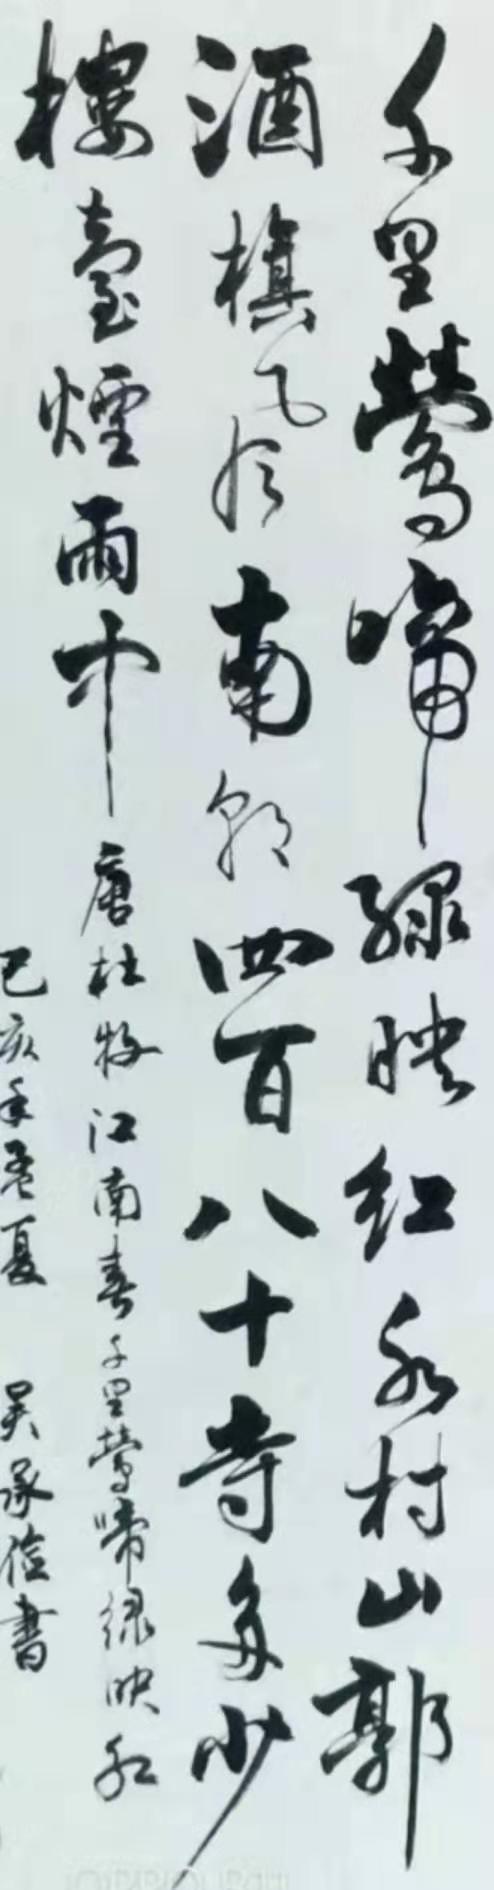 千里鶯啼綠映紅水村山郭
酒旗風南朝四百八十寺多少
樓臺煙雨中
唐杜牧江南春千里鶯啼綠映紅
己亥年孟夏 吳承儉書